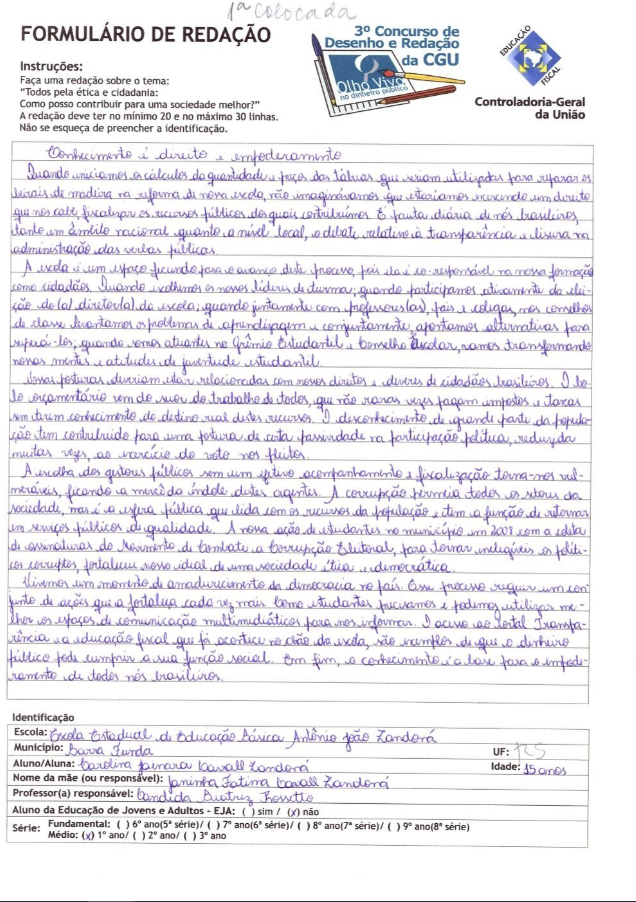 1ª colocada
FORMULÁRIO DE REDAÇÃO
3º Concurso de
Desenho e Redação
da CGU
Olho Vivo
no dinheiro público
EDUCAÇÃO
FISCAL
Controladoria-Geral
da União
Instruções:
Faça uma redação sobre o tema:
"Todos pela ética e cidadania:
Como posso contribuir para uma sociedade melhor?"
A redação deve ter no mínimo 20 e no máximo 30 linhas.
Não se esqueça de preencher a identificação.
Conhecimento é direito e empoderamento
Quando iniciamos os cálculos da quantidade e preços das tábuas que seriam utilizadas para reparar os
beirais de madeira na reforma de nossa escola, não imaginávamos que estaríamos exercendo um direito
que nos cabe, fiscalizar os recursos públicos dos quais contribuímos. É pauta diária de nós brasileiros,
tanto em âmbito nacional quanto a nível local, o debate relativo à transparência e lisura na
administração das verbas públicas.
A escola é um espaço fecundo para o avanço deste processo, pois ela é co-responsável na nossa formação
como cidadãos. Quando escolhemos os nossos líderes de turma; quando participamos ativamente da elei-
ção do(a) diretor(a) da escola; quando juntamente com professores(as), pais e colegas, nos conselhos
de classe levantamos os problemas de aprendizagem e conjuntamente, apontamos alternativas para
superá-los; quando somos atuantes no Grêmio Estudantil e Conselho Escolar, vamos transformando
nossas mentes e atitudes de juventude estudantil.
Nossas posturas deveriam estar relacionadas com nossos direitos e deveres de cidadãos brasileiros. O bo-
lo orçamentário vem do suor do trabalho de todos, que não raras vezes pagam impostos e taxas
sem terem conhecimento do destino real destes recursos. O desconhecimento de grande parte da popula-
ção tem contribuído para uma postura de certa passividade na participação política, reduzida
muitas vezes, ao exercício do voto nos pleitos.
A escolha dos gestores públicos sem um efetivo acompanhamento e fiscalização torna-nos vul-
neráveis, ficando a mercê da índole destes agentes. A corrupção permeia todos os setores da
sociedade, mas é a esfera pública que lida com os recursos da população e tem a função de retornar
em serviços públicos de qualidade. A nossa ação de estudantes no município em 2009 com a coleta
de assinaturas do Movimento de Combate a Corrupção Eleitoral, para tornar inelegíveis os políti-
cos corruptos, fortaleceu nosso ideal de uma sociedade ética e democrática.
Vivemos um momento de amadurecimento da democracia no país. Esse processo requer um con
junto de ações que a fortaleça cada vez mais. Como estudantes precisamos e podemos utilizar me-
lhor os espaços de comunicação multimidiáticos para nos informar. O acesso ao Portal Transpa-
rência e a educação fiscal que já acontece no chão da escola, são exemplos de que o dinheiro
público pode cumprir a sua função social. Em fim, o conhecimento é a base para o empode-
ramento de todos nós brasileiros.
Identificação
Escola: Escola Estadual de Educação Básica Antônio João Zandoná
Município: Barra Funda
UF: RS
Aluno/Aluna: Carolina Cavall Zandoná
Idade: 15 anos
Nome da mãe (ou responsável): Janinha Fatima Cavall Zandoná
Professor(a) responsável: Candida Beatriz Rossetto
Aluno da Educação de Jovens e Adultos - EJA: ( ) sim / (x) não
Série: Fundamental: ( ) 6º ano(5ª série)/ ( ) 7º ano(6ª série)/ ( ) 8º ano(7ª série)/ ( ) 9º ano(8ª série)
Médio: (x) 1º ano/ ( ) 2º ano/ ( ) 3º ano